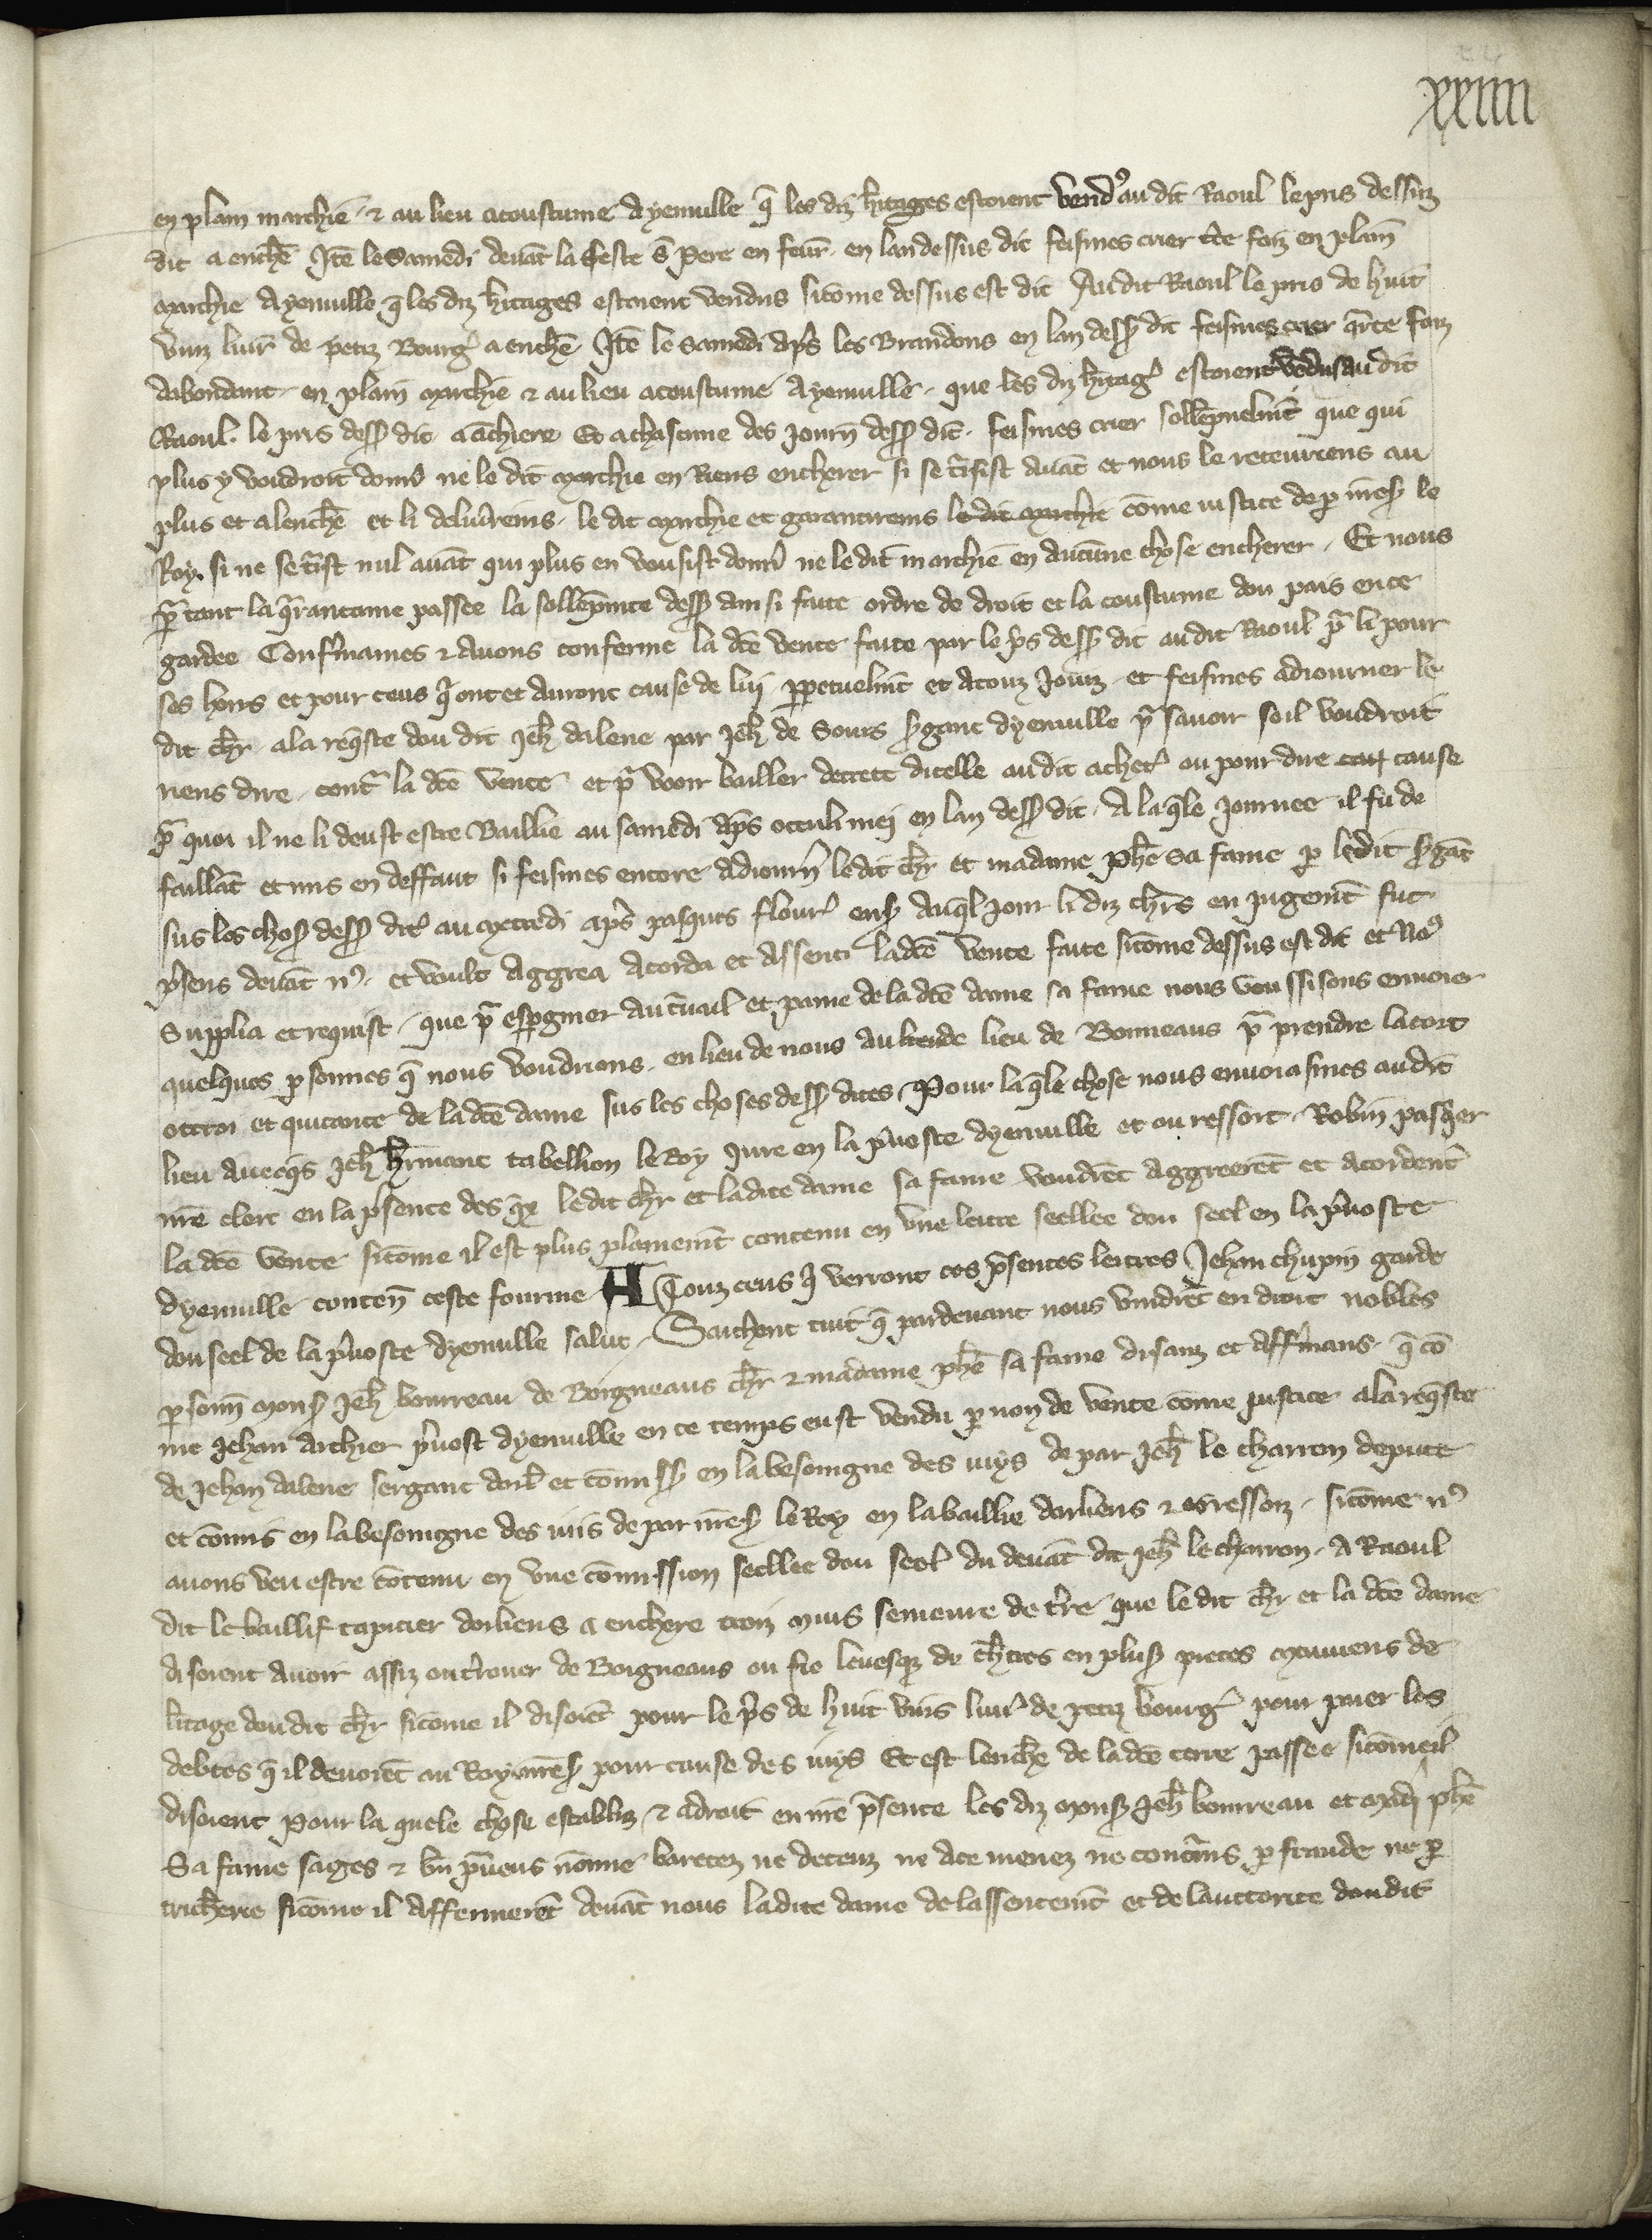 xxiiii
en plain marchie. ⁊ au lieu acoustume Ayenuille q̄ les diz h̄itages estoient vendꝰ au dit Raoul le pris dessuz
dit a ench̄e Itē le Samedi deuāt la feste S̄ Pere en feur̄. en lan dessus dit feismes crier tc̄e foiz en plain
marchie Ayenuille q̄ les diz h̄itages estoient vendus sicōme dessus est dit Audit Raoul le pris de huit
vinz liur̄ de petiz Bourḡ a ench̄e Itē le samedi ap̄s les Brandons en lan dess̄ dit feismes crier q̄rte foiz
dabondant. en plain marchie ⁊ au lieu acoustume Ayenuille. que les diz h̄itaḡ estoient vēdus au dit
Raoul. le pris dess̄ dit a ēchiere Et a chascune des journ̄ dess̄ dit̄. feismes crier sollēpnelmēt que qui
plus y voudroit donn̄ ne le dit marchie en Riens encherer si se t̄isist auāt et nous le receuriens au
plus et a lench̄e et li deliuerriens. le dit marchie et garantirons le dit marchie cōme iustice de ꝑ n̄res̄ le
Roy. si ne se t̄ist nul auāt qui plus en vousist donn̄ ne le dit marchie en aucune chose encherer. Et nous
p̄ tant la q̄rantaine passee la sollēpnite dess̄ ainsi faite ordre de droit et la coustume dou pais en ce
gardee Conf̄mames ⁊ auons conferme la dc̄e vente faite par le p̄s dess̄ dit audit Raoul p̄ li pour
ses hoirs et pour ceus q̄ ont et auront cause de luy ꝑpetuelmēt et a touz Jourz et feismes adiourner le
dit ch̄r. a la req̄ste dou dit Jeh̄ dalene par Jeh̄ de Sours s̄gant dyenuille p̄ sauoir se il voudroit
riens dire. contr̄ la dc̄e vente et p̄ veoir bailler decrett dicelle au dit achet̄ ou pour dire cause
p̄ quoi il ne li deust estre Baillie au samedi ap̄s occuli mei en lan dess̄ dit. A la q̄le journee il fu de
faillāt et mis en deffaut si feismes encore adiourn̄ le dit ch̄r et madame ph̄e sa fame ꝑ ledit s̄gāt
sus les chos̄ dess̄ dit̄ au mercredi ap̄s pasques flour̄ ens̄ auq̄l jour li diz ch̄rs en jugemēt fut
p̄sens deuāt nꝰ. et voult aggrea acorda et assenti la dc̄e vente faite sicōme dessus est dit et noꝰ
Supplia et requist. que p̄ esꝑgnier au t̄uail et paine de la dc̄e dame sa fame nous voussissons enuoier
quelques ꝑsonnes q̄ nous voudrions. en lieu de nous au lieu de Bonneaus p̄ prendre lacort
ottroi et quitance de la dc̄e dame sus les choses dess̄ dites. Pour la q̄le chose nous enuoiasmes audit
lieu auecq̄s Jeh̄ h̄rmant tabellion le Roy jure en la p̄uoste dyenuille et ou ressort. Robin pasq̄er
n̄re clerc en la p̄sence des q̄x le dit ch̄r et la dite dame sa fame voudrēt aggreerēt et acorderēt
la dc̄e vente sicōme il est plus plainemēt contenu en vne lettre seellee dou seel en la p̄uoste
dyenuille conten̄ ceste fourme A Touz ceus q̄ verront ces p̄sentes lettres Jehan chupin garde
dou seel de la p̄uoste dyenuille salut. Sachent tuit q̄ pardeuant nous vindrēt en droit nobles
ꝑsonn̄ mons̄ Jeh̄ bourreau de Boigneaus ch̄r ⁊ madame ph̄e sa fame disanz et aff̄mans. q̄ cō
me Jehan archier p̄uost dyenuille en ce temps eust vendu ꝑ non de vente cōme justice a la req̄ste
de Jehan dalene sergant dorl̄ et cōmiss̄ en la besoingne des iuys de par Jeh̄ le charron depute
et cōmis en la besoingne des iuis de par n̄res̄ le Roy en la baillie dorliens ⁊ es ressorz. sicōme nꝰ
auons veu estre cōtenu en vne cōmission seellee dou seel du deuāt dit Jeh̄ le charron. A Raoul
dit le baillif tapicier dorliens a enchere troiz muis semeure de t̄re que le dit ch̄r et la dc̄e dame
disoient auoir assiz ou t̄rouer de Boigneaus ou fie leuesq̄ de ch̄rtres en plus̄ pieces mouuens de
litage dou dit ch̄r sicōme il disoiēt pour le p̄s de huit vins liur̄ de petiz bourḡ pour paier les
debtes q̄ il deuoiēt au Roy n̄res̄ pour cause des iuys Et est lench̄e de la dc̄e terre passee sicōme il
disoient Pour la quele chose establiz ⁊ a droit en n̄re p̄sence les diz mons̄ Jeh̄ bourreau et mad̄ ph̄e
Sa fame sages ⁊ bn̄ p̄ueus nōmie baretez ne deceuz ne a ce menez ne contrains ꝑ fraude ne ꝑ
tricherie sicōme il affermerēt deuāt nous la dite dame de lassentemēt et de lauctorite dou dit